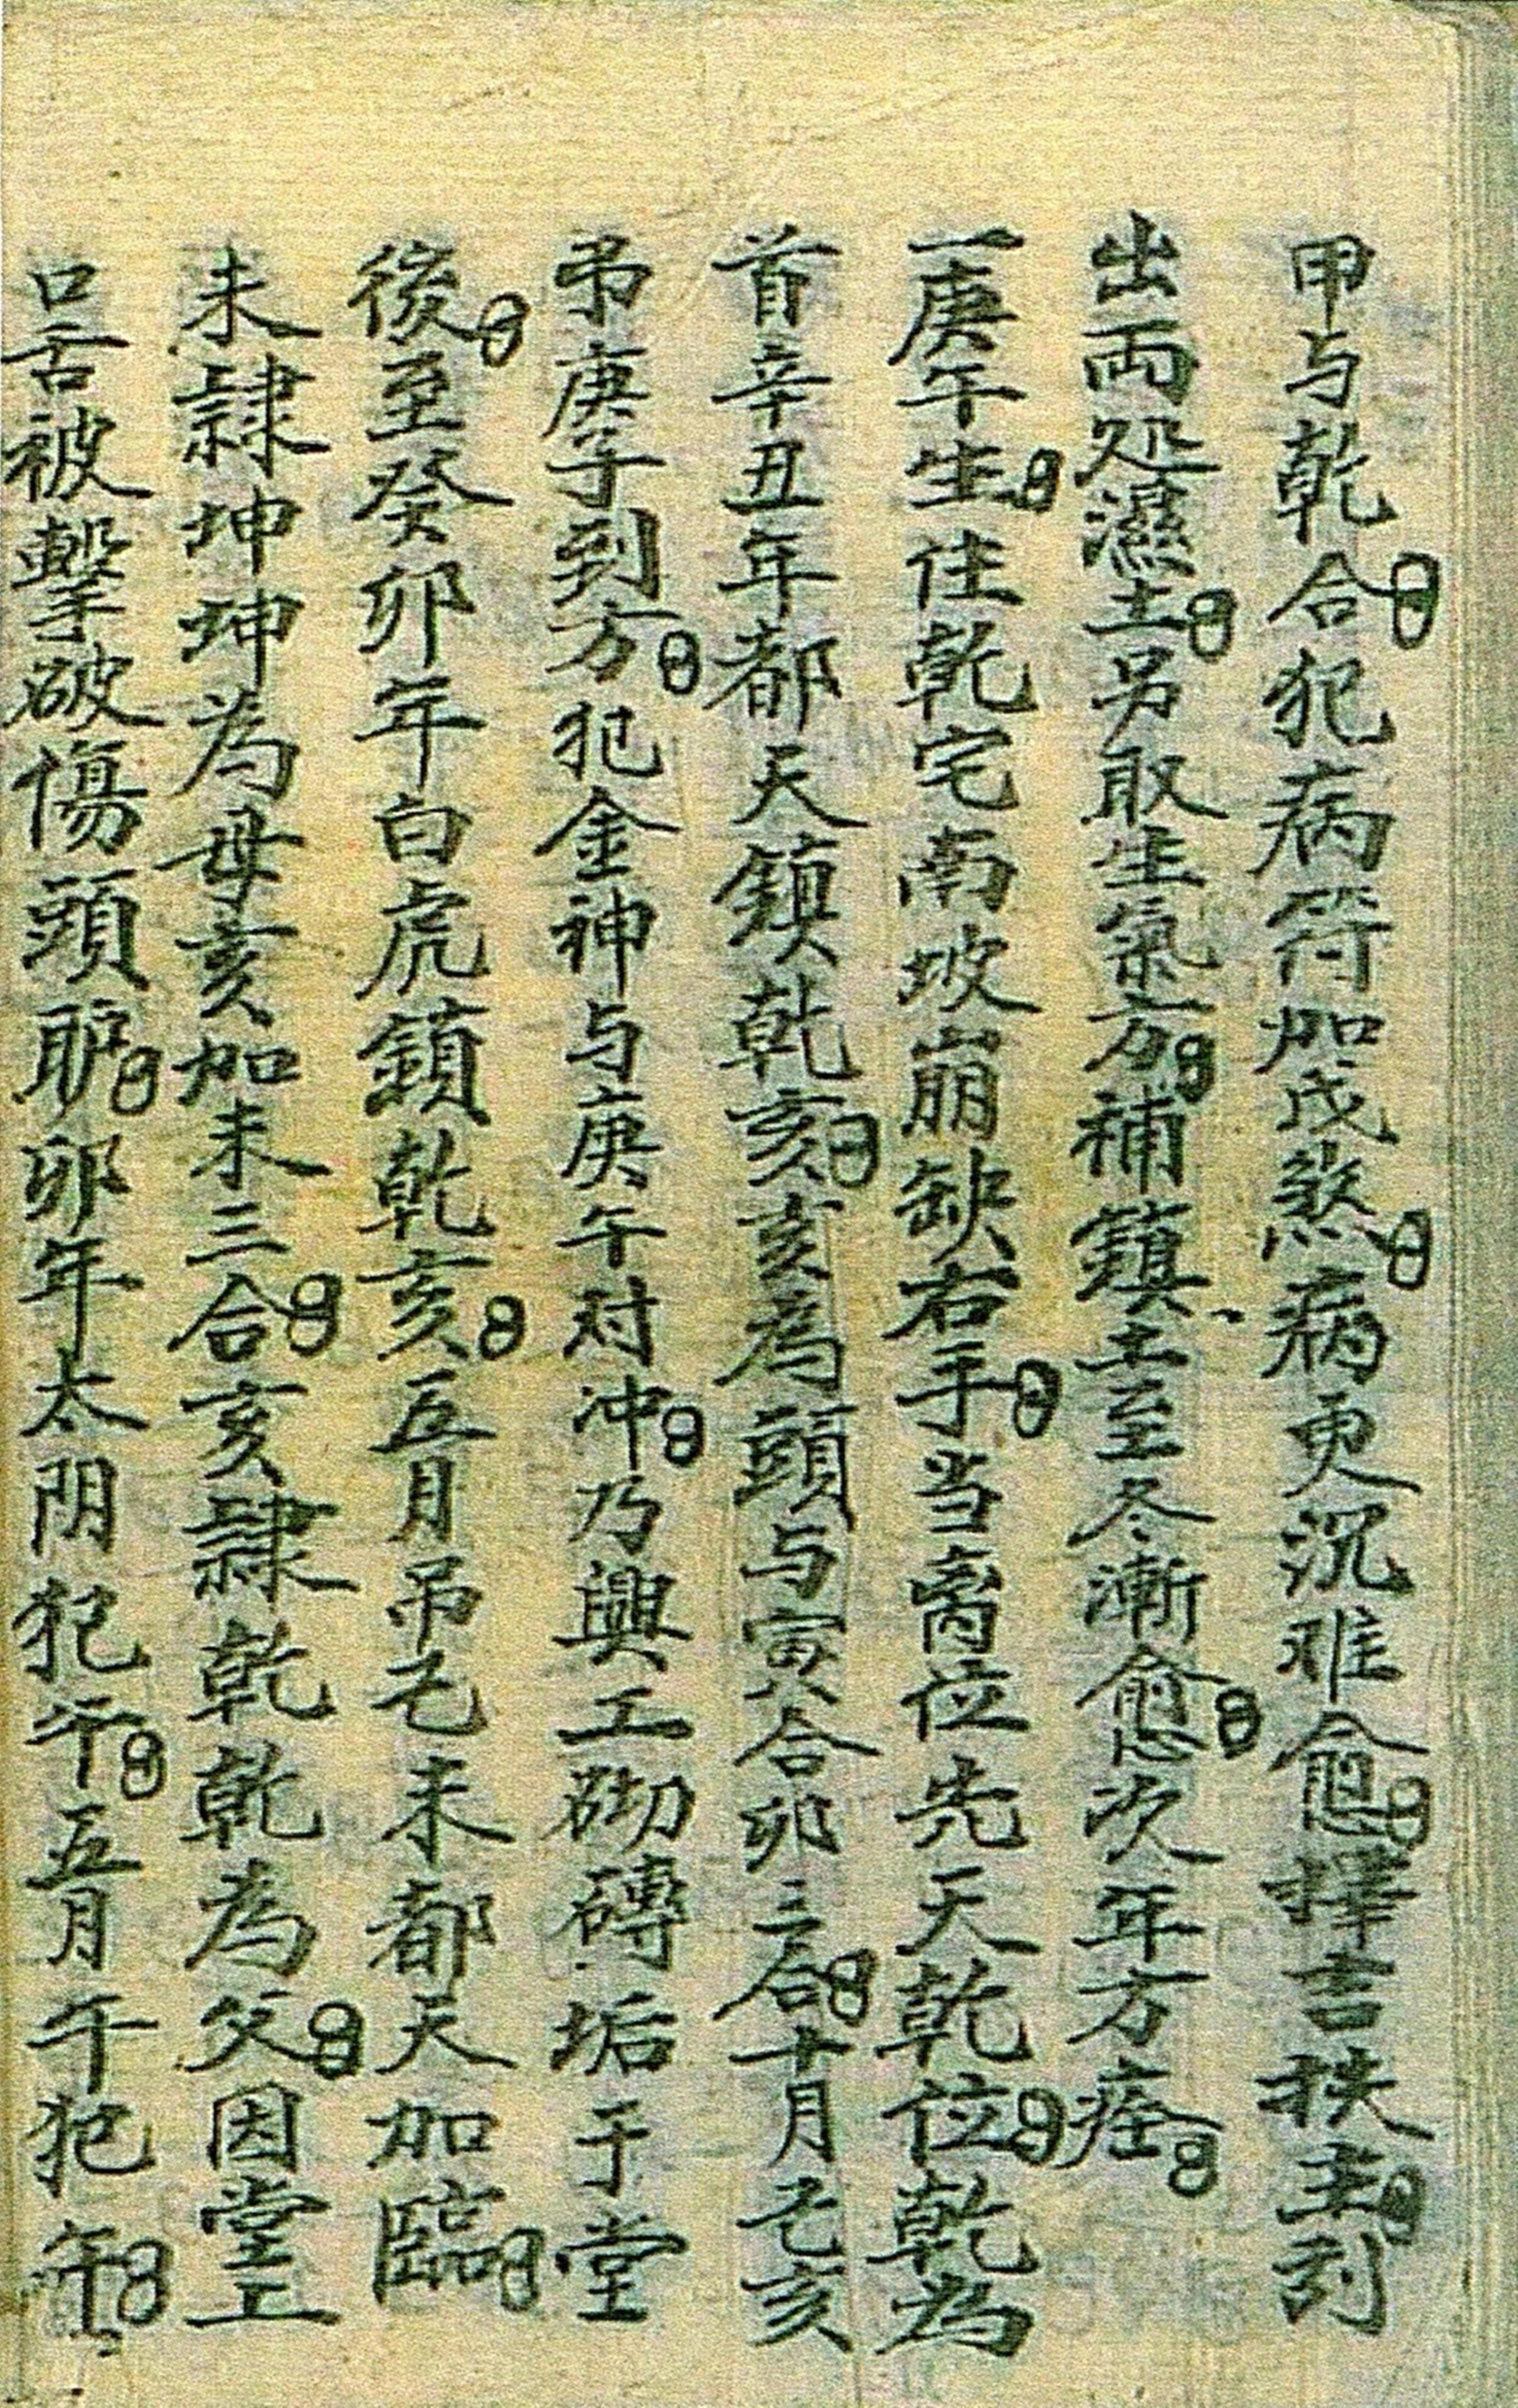 甲与乾合犯病符加氏煞病更沉难愈擇吉扶主刮
出両処濕土另取生氣方補鎮土至冬漸愈次年方痊
一庚午生住乾宅南坡崩缺右手当离位先天乾位乾為
首辛丑年都天鎮乾亥亥為頭与寅合卯三合十月乙亥
吊庚子到方犯金神与庚午対冲乃興工砌磚垢于堂
後至癸卯年白虎鎖乾亥五月吊乙未都天加臨
未隸坤坤為母亥加未三合亥隸乾乾為父因堂上
口舌被擊破傷頭胪卯年太阴犯午五月午犯午